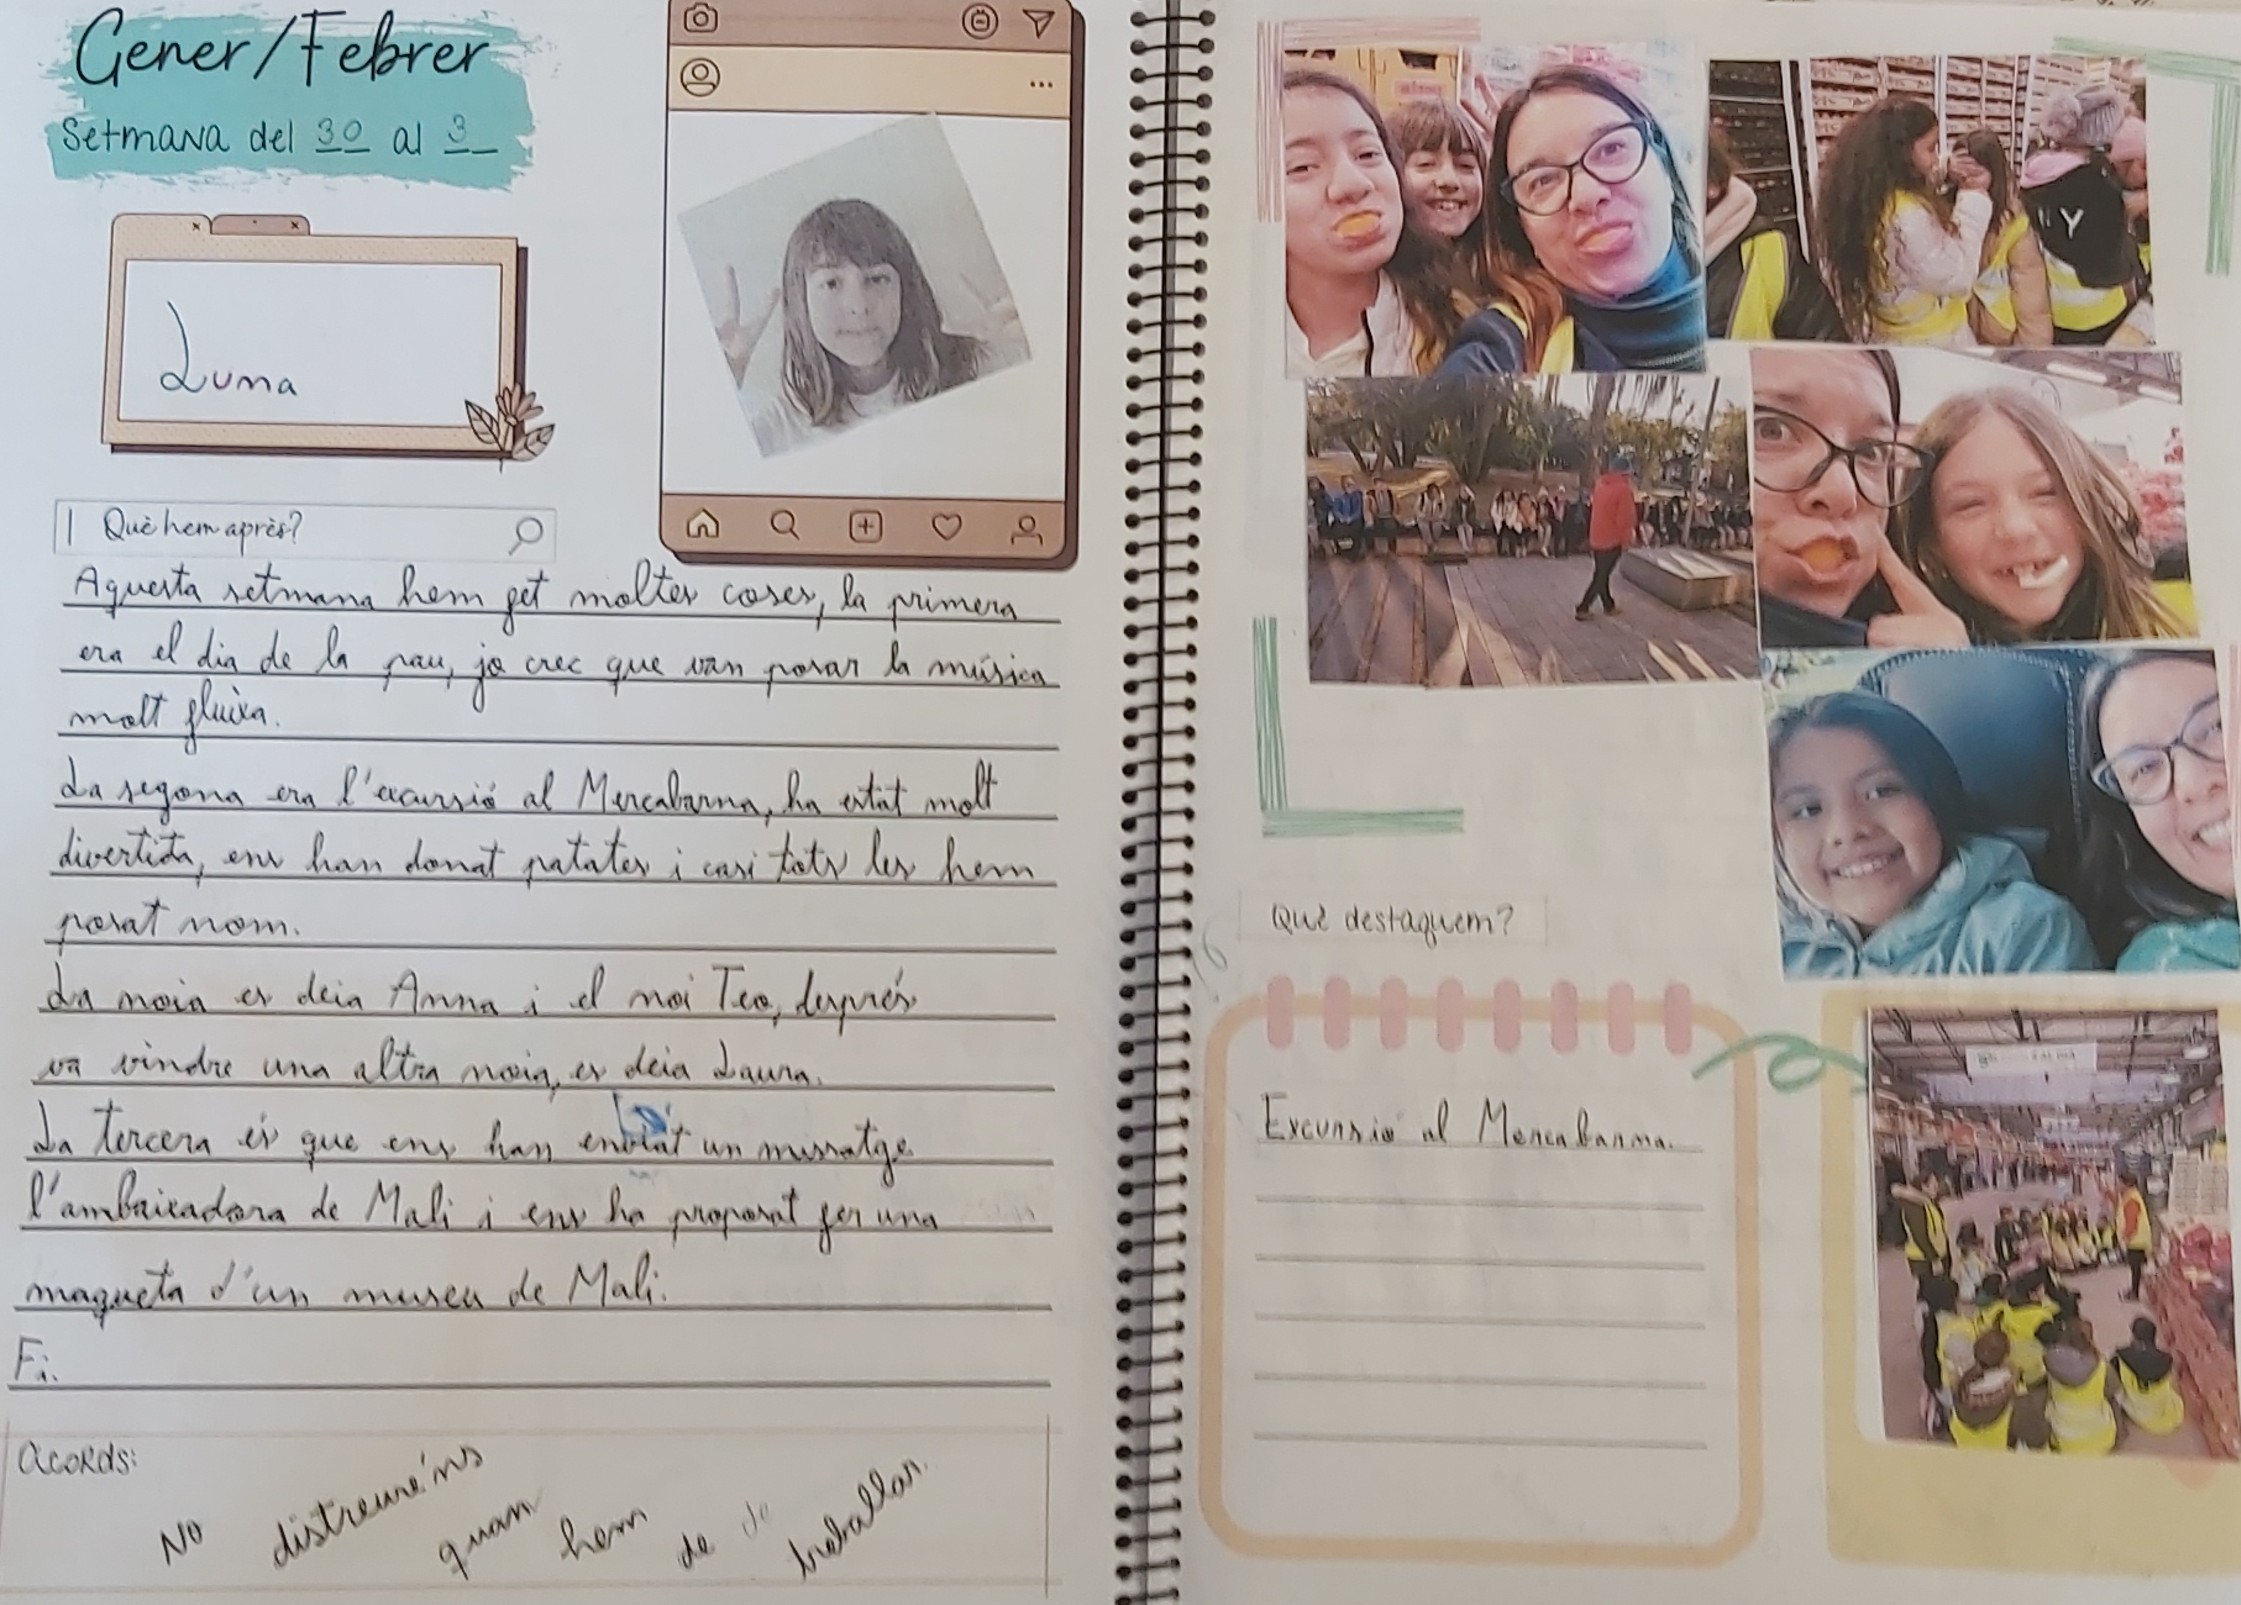 Gener/Febrer
Setmana del 30 al 3
Luna
Què hem après?
Aquesta setmana hem fet moltes coses, la primera
era el dia de la pau, jo crec que van posar la música
molt fluixa.
La segona era l'excursió al Mercabarna, ha estat molt
divertida, ens han donat patates i casi tots les hem
posat nom.
La noia es deia Anna i el noi Teo, després
va vindre una altra noia, es deia Laura.
La tercera és que ens han enviat un missatge
l'ambaixadora de Mali i ens ha proposat fer una
maqueta d'un museu de Mali.
Fi.
Acords:
No distreure'ns quan hem de de treballar.
Y
Què destaquem?
Excursió al Mercabarna.